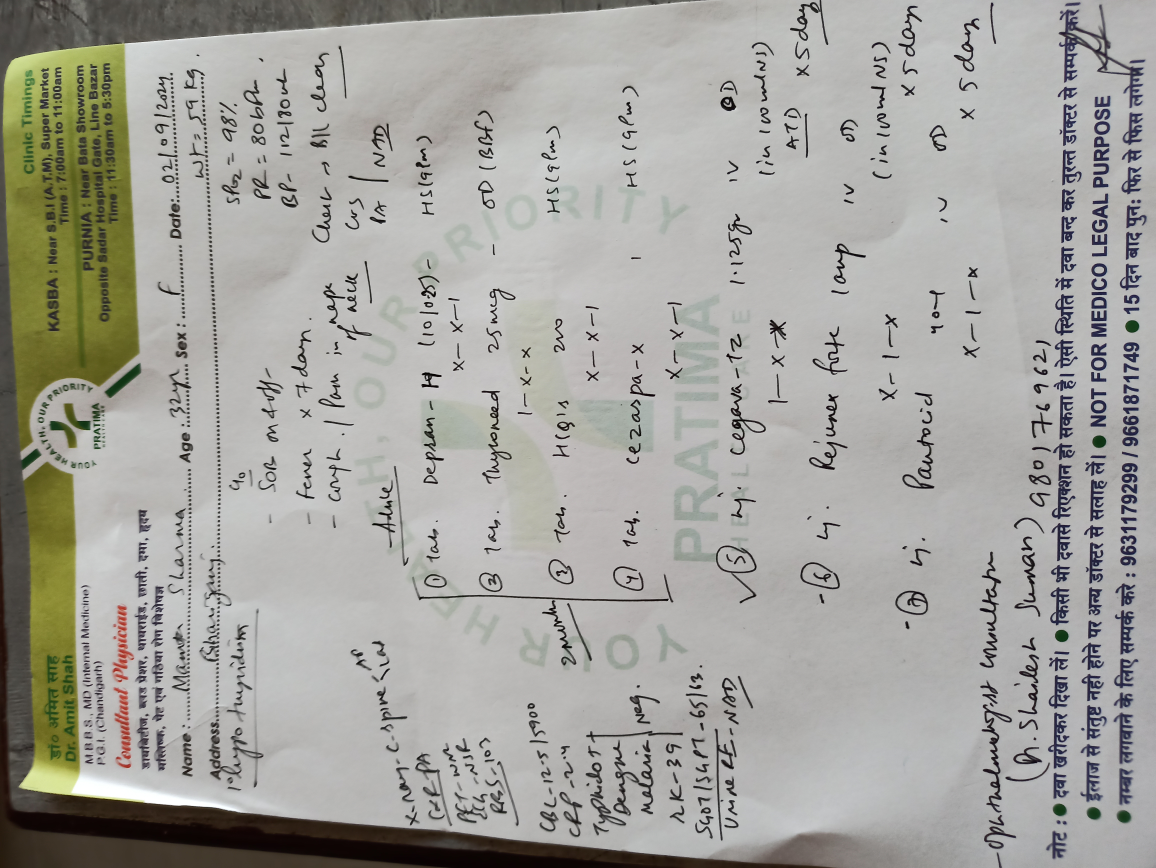 डॉ० अमित साह
Dr. Amit Shah
M.B.B.S., MD (Internal Medicine)
P.G.I. (Chandigarh)
Consultant Physician
डायबिटीज, ब्लड प्रेशर, थायराईड, छाती, दमा, हृदय
मस्तिष्क, पेट एवं गठिया रोग विशेषज्ञ
YOUR HEALTH, OUR PRIORITY
PRATIMA
Clinic Timings
KASBA : Near S.B.I (A.T.M), Super Market
Time : 7:00am to 11:00am
PURNIA : Near Bata Showroom
Opposite Sadar Hospital Gate, Line Bazar
Time : 11:30am to 5:30pm
Name : Mamta Sharma Age : 32yr Sex : F Date: 02/09/2024
Address
Wt = 59 kg.
Hypothyroidism
c/o
- SOB on & off-
- Fever x 7 days.
- Cough. / Pain in nape of neck
SPO2 = 98%
PR = 80bPm.
BP - 112/80
Chest → B/L clear
CVS
PA | NAD
X-ray- C-Spine AP Lat
CXR-PA
ECG - NSR
RBS-103
CBC-12.5/5900
CRP-2.4
Typhidot +
Dengue
Malaria Neg.
RK-39
SGOT/SGPT-65/63.
Urine RE-NAD
- Advice
① Tab. Depran-H (10/0.25) - HS (9Pm)
x-x-1
② Tab. Thyroneed 25mcg - OD (BBF)
1-x-x
③ Tab. HCQIS 200 HS (9Pm)
x-x-1
④ Tab. Cezaspa-X HS (9Pm)
x-x-1
2 month
⑤ Inj. Cegava-TZ 1.125gm IV BD
1-x-x (in 100ml NS)
ATD x 5 day
- ⑥ Inj. Rejunex forte 1amp IV OD
x-1-x (in 100ml NS)
x 5 day
- ⑦ Inj. Pantocid 40-1 IV OD
x-1-x x 5 day
YOUR HEALTH, OUR PRIORITY
PRATIMA
HEALTH CARE
- Ophthalmologist consultation
(Dr. Shailesh Suman) 9801769621
नोट : ● दवा खरीदकर दिखा लें। ● किसी भी दवासे रिएक्शन हो सकता है। ऐसी स्थिति में दवा बन्द कर तुरन्त डॉक्टर से सम्पर्क करें।
● ईलाज से संतुष्ट नही होने पर अन्य डॉक्टर से सलाह लें। ● NOT FOR MEDICO LEGAL PURPOSE
● नम्बर लगवाने के लिए सम्पर्क करे : 9631179299 / 9661871749 ● 15 दिन बाद पुन: फिर से फिस लगेगा।